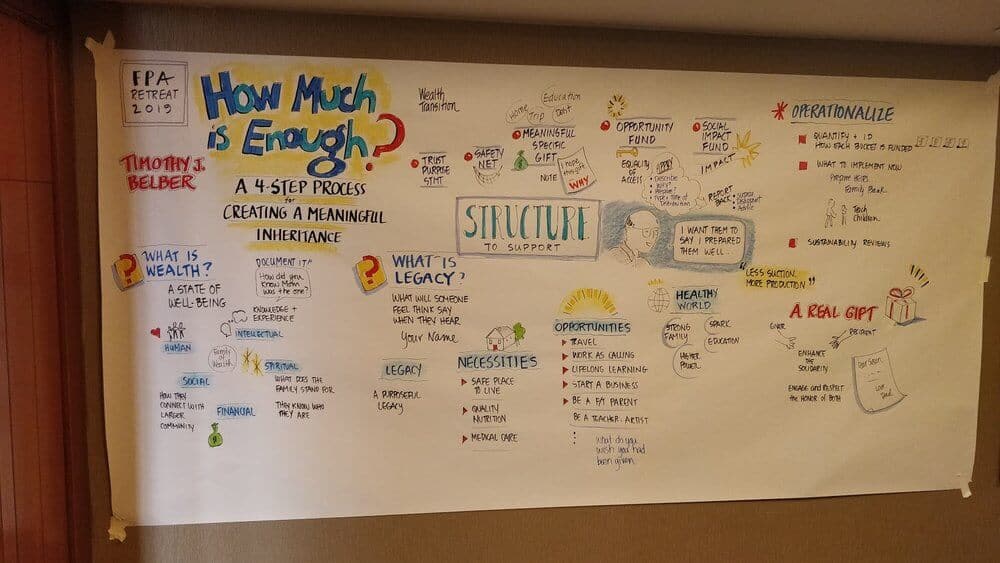 FPA
RETREAT
2019
How Much
is Enough?
TIMOTHY J.
BELBER
A 4-STEP PROCESS
for
CREATING A MEANINGFUL
INHERITANCE
?
WHAT IS
WEALTH?
A STATE OF
WELL-BEING
DOCUMENT IT!
How did you
know Mom
was the one?
KNOWLEDGE +
EXPERIENCE
INTELLECTUAL
HUMAN
Family
of
Wealth
SPIRITUAL
SOCIAL
WHAT DOES THE
FAMILY STAND FOR
HOW THEY
CONNECT WITH
LARGER
COMMUNITY
FINANCIAL
THEY KNOW WHO
THEY ARE
$
?
WHAT IS
LEGACY?
WHAT WILL SOMEONE
FEEL THINK SAY
WHEN THEY HEAR
Your Name
LEGACY
A PURPOSEFUL
LEGACY
NECESSITIES
SAFE PLACE
TO LIVE
QUALITY
NUTRITION
MEDICAL CARE
Wealth
Transition
TRUST
PURPOSE
STMT
SAFETY
NET
Home
Education
Trip
Debt
MEANINGFUL
SPECIFIC
GIFT
$
NOTE
I hope
this gift...
WHY
OPPORTUNITY
FUND
EQUALITY
OF
ACCESS
APPLY
DESCRIBE
WHY?
SOCIAL
IMPACT
FUND
IMPACT
REPORT
BACK
STRUCTURE
TO SUPPORT
I WANT THEM TO
SAY I PREPARED
THEM WELL.
"LESS SUCTION.
MORE PRODUCTION"
OPPORTUNITIES
TRAVEL
WORK AS CALLING
LIFELONG LEARNING
START A BUSINESS
BE A F/T PARENT
BE A TEACHER, ARTIST
what do you
wish you had
been given
HEALTHY
WORLD
STRONG
FAMILY
SPARK
EDUCATION
HIGHER
POWER
OPERATIONALIZE
QUANTIFY + ID
HOW EACH BUCKET IS FUNDED
WHAT TO IMPLEMENT NOW
PREPARE HEIRS
Family Bank
Teach
Children
SUSTAINABILITY REVIEWS
A REAL GIFT
GIVER
RECIPIENT
ENHANCE
THE
SOLIDARITY
ENGAGE and RESPECT
the HONOR of BOTH
Love
Dad